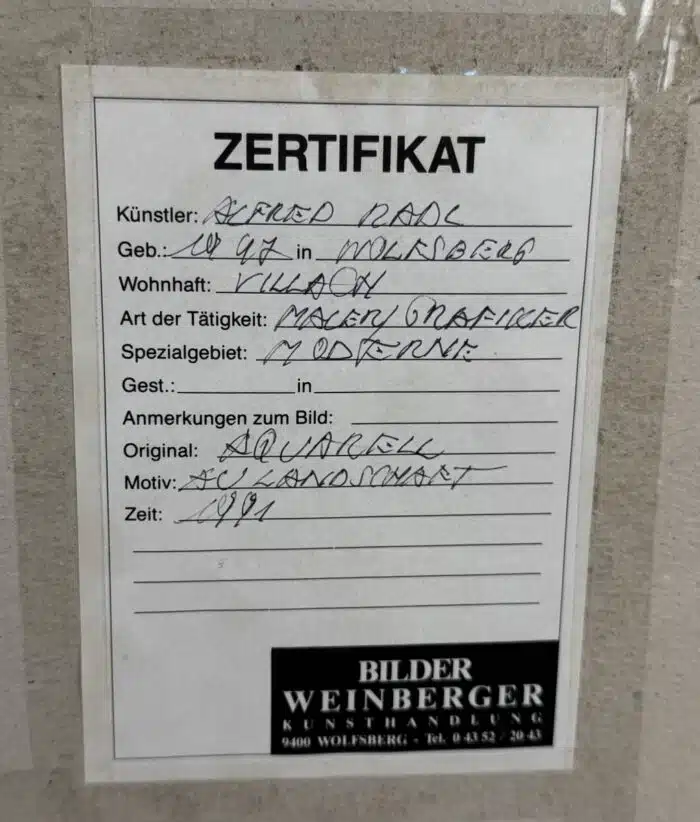 ZERTIFIKAT
Künstler: ALFRED RADL
Geb.: 1947 in WOLFSBERG
Wohnhaft: VILLACH
Art der Tätigkeit: MALER/GRAFIKER
Spezialgebiet: MODERNE
Gest.: in
Anmerkungen zum Bild:
Original: AQUARELL
Motiv: AULANDSCHAFT
Zeit: 1991
BILDER
WEINBERGER
KUNSTHANDLUNG
9400 WOLFSBERG - Tel. 0 43 52 / 20 43